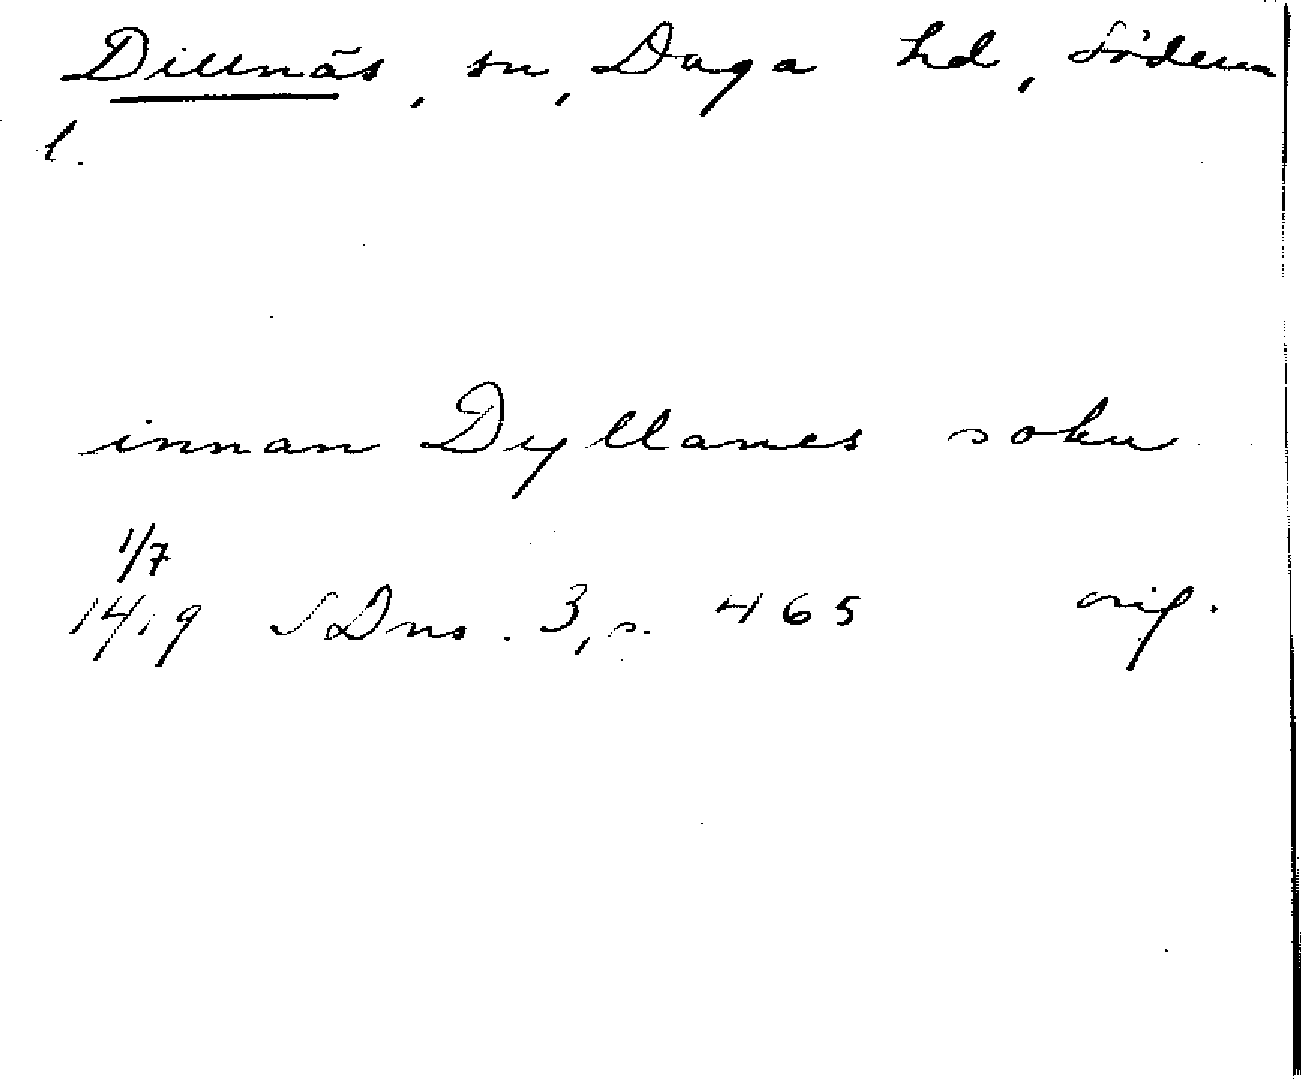 Dillnäs, sn, Daga hd, Söderm
l.
innan Dyllanes sokn
1/7
1419 SDns. 3, s. 465 orig.